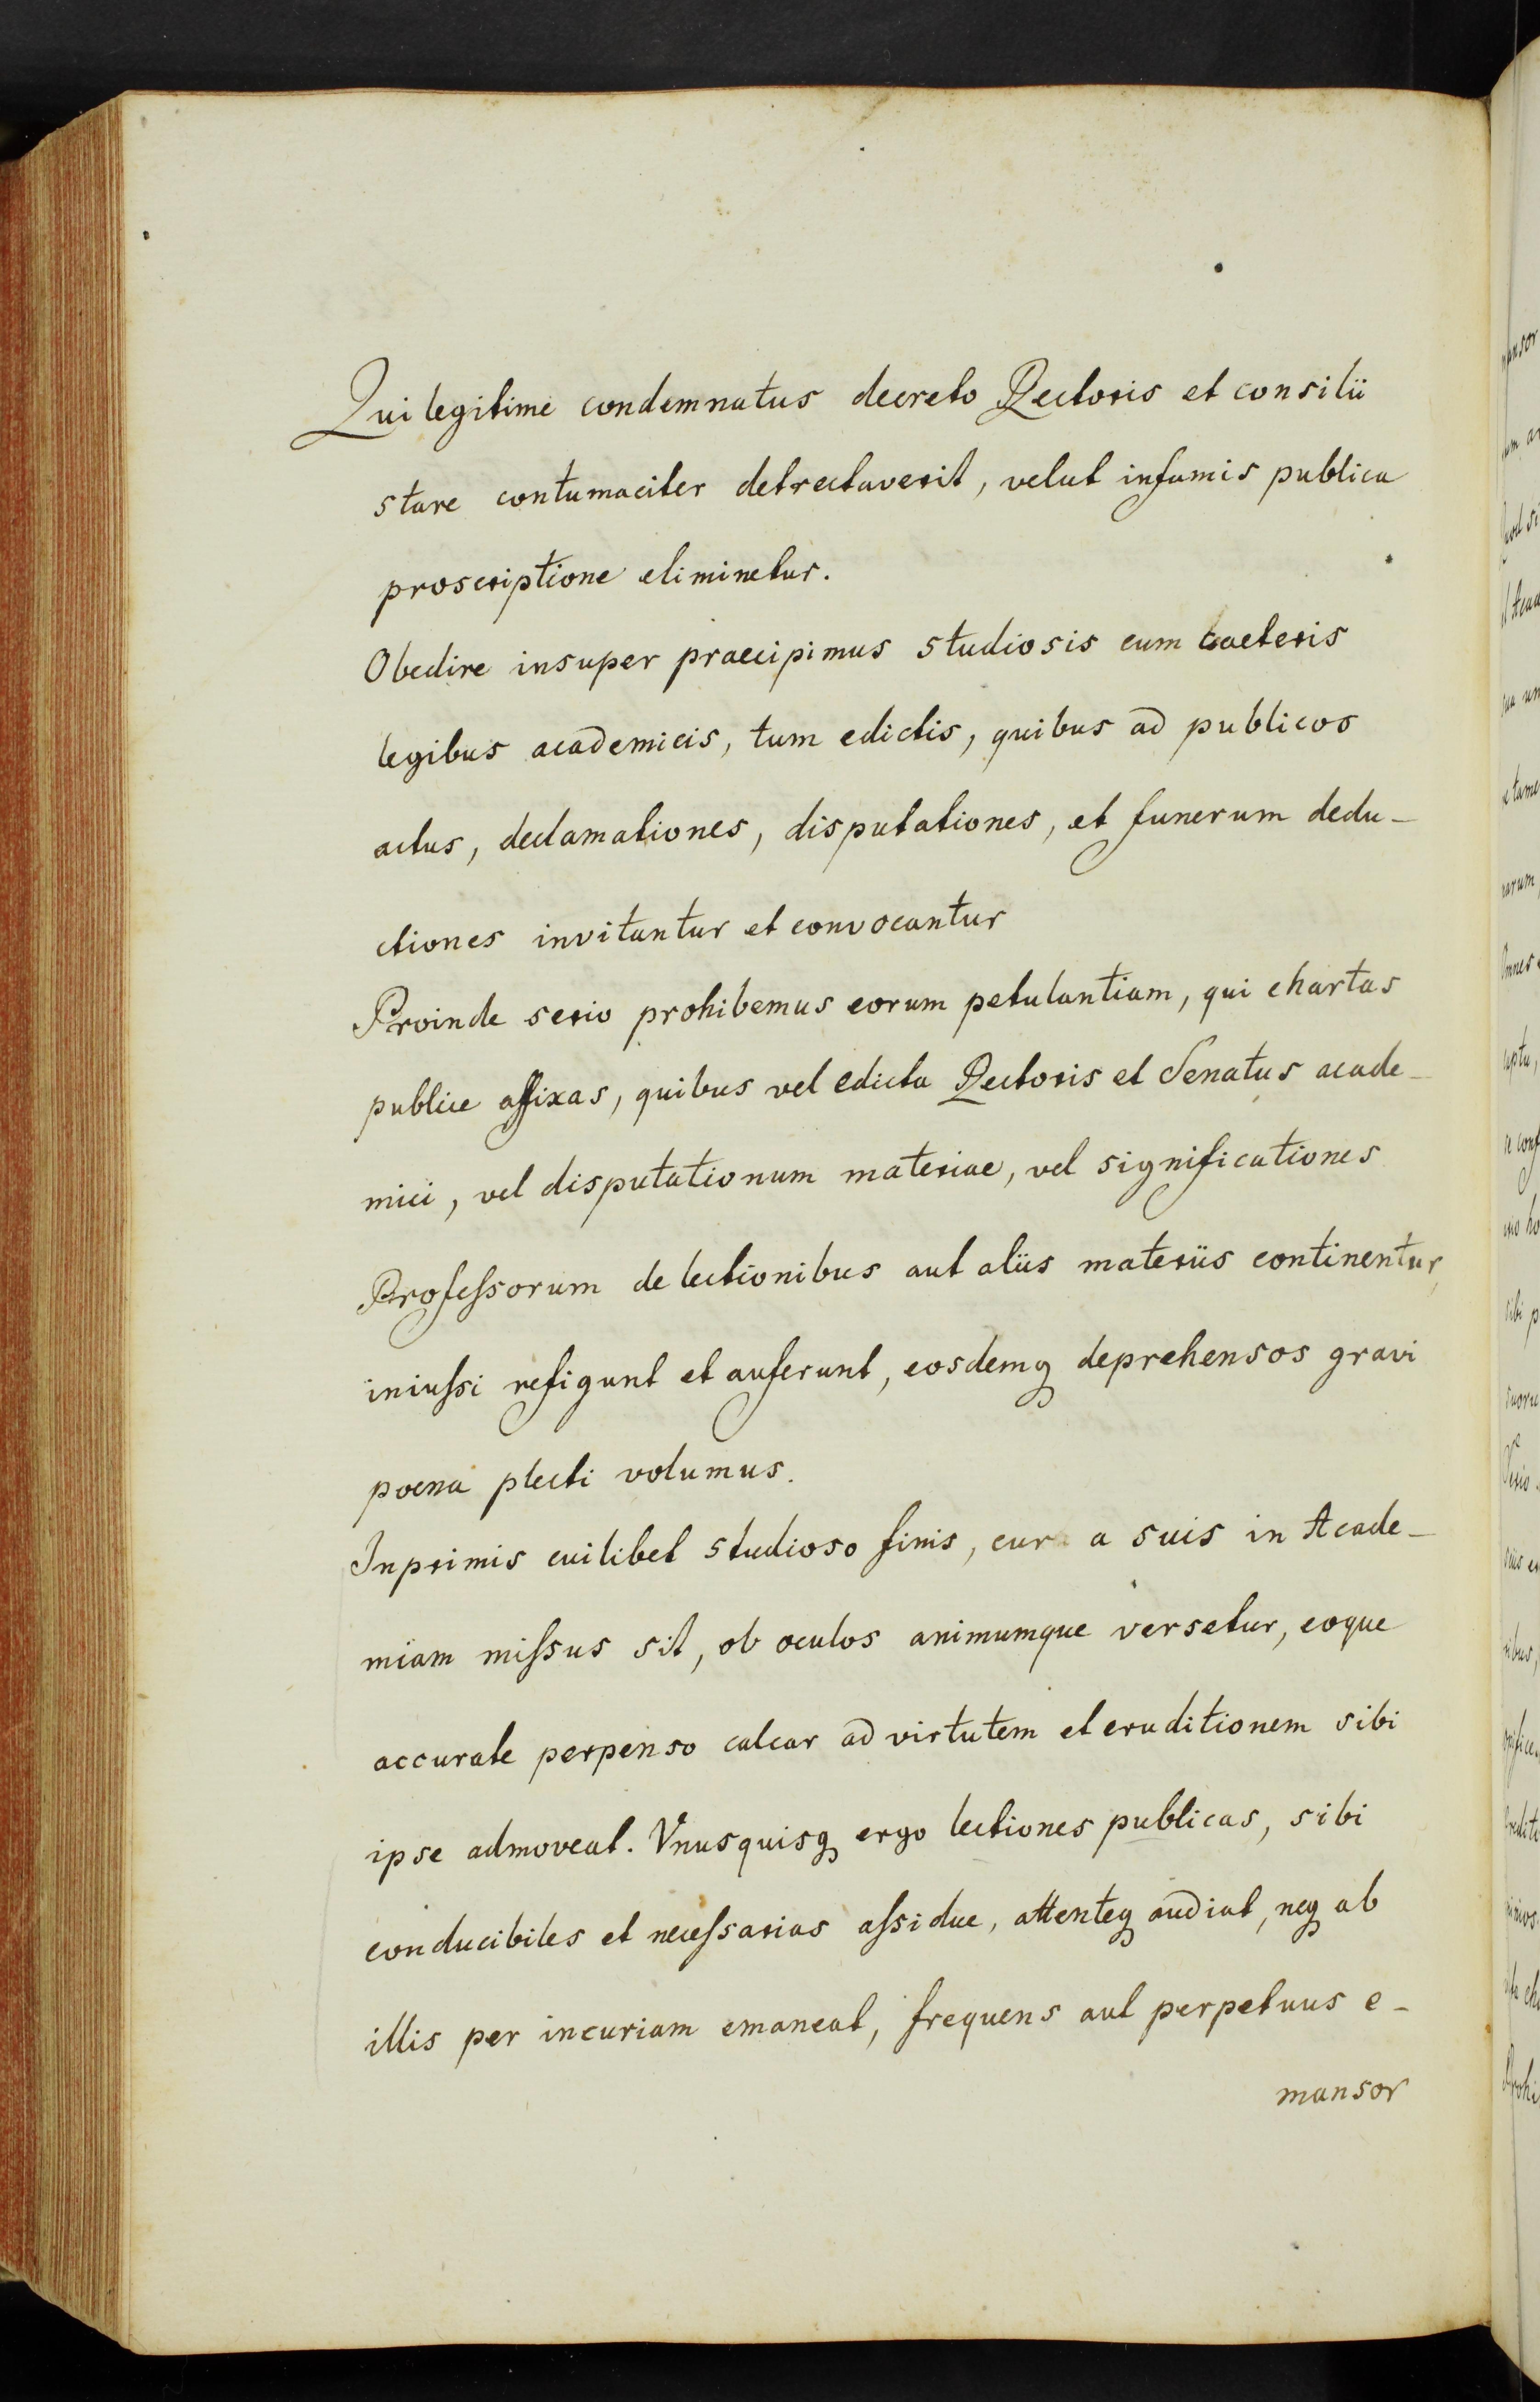 Qui legitime condemnatus decreto Rectoris et consilii
stare contumaciter detrectaverit, velut infamis publica
proscriptione eliminetur.
Obedire insuper praecipimus studiosis cum caeteris
legibus academicis, tum edictis, quibus ad publicos
actus, declamationes, disputationes, et funerum dedu-
ctiones invitantur et convocantur
Proinde serio prohibemus eorum petulantiam, qui chartas
publice affixas, quibus vel edicta Rectoris et Senatus acade-
mici, vel disputationum materiae, vel significationes
Profeſsorum de lectionibus aut aliis materiis continentur,
iniuſsi refigunt et auferunt, eosdemq deprehensos gravi
poena plecti volumus.
Inprimis cuilibet studioso finis, cur a suis in Acade-
miam miſsus sit, ob oculos animumque versetur, eoque
accurate perpenso calcar ad virtutem et eruditionem sibi
ipse admoveat. Vnusquisq ergo lectiones publicas, sibi
conducibiles et neceſsarias aſsidue, attenteq audiat, neq ab
illis per incuriam emaneat, frequens aut perpetuus e-
mansor